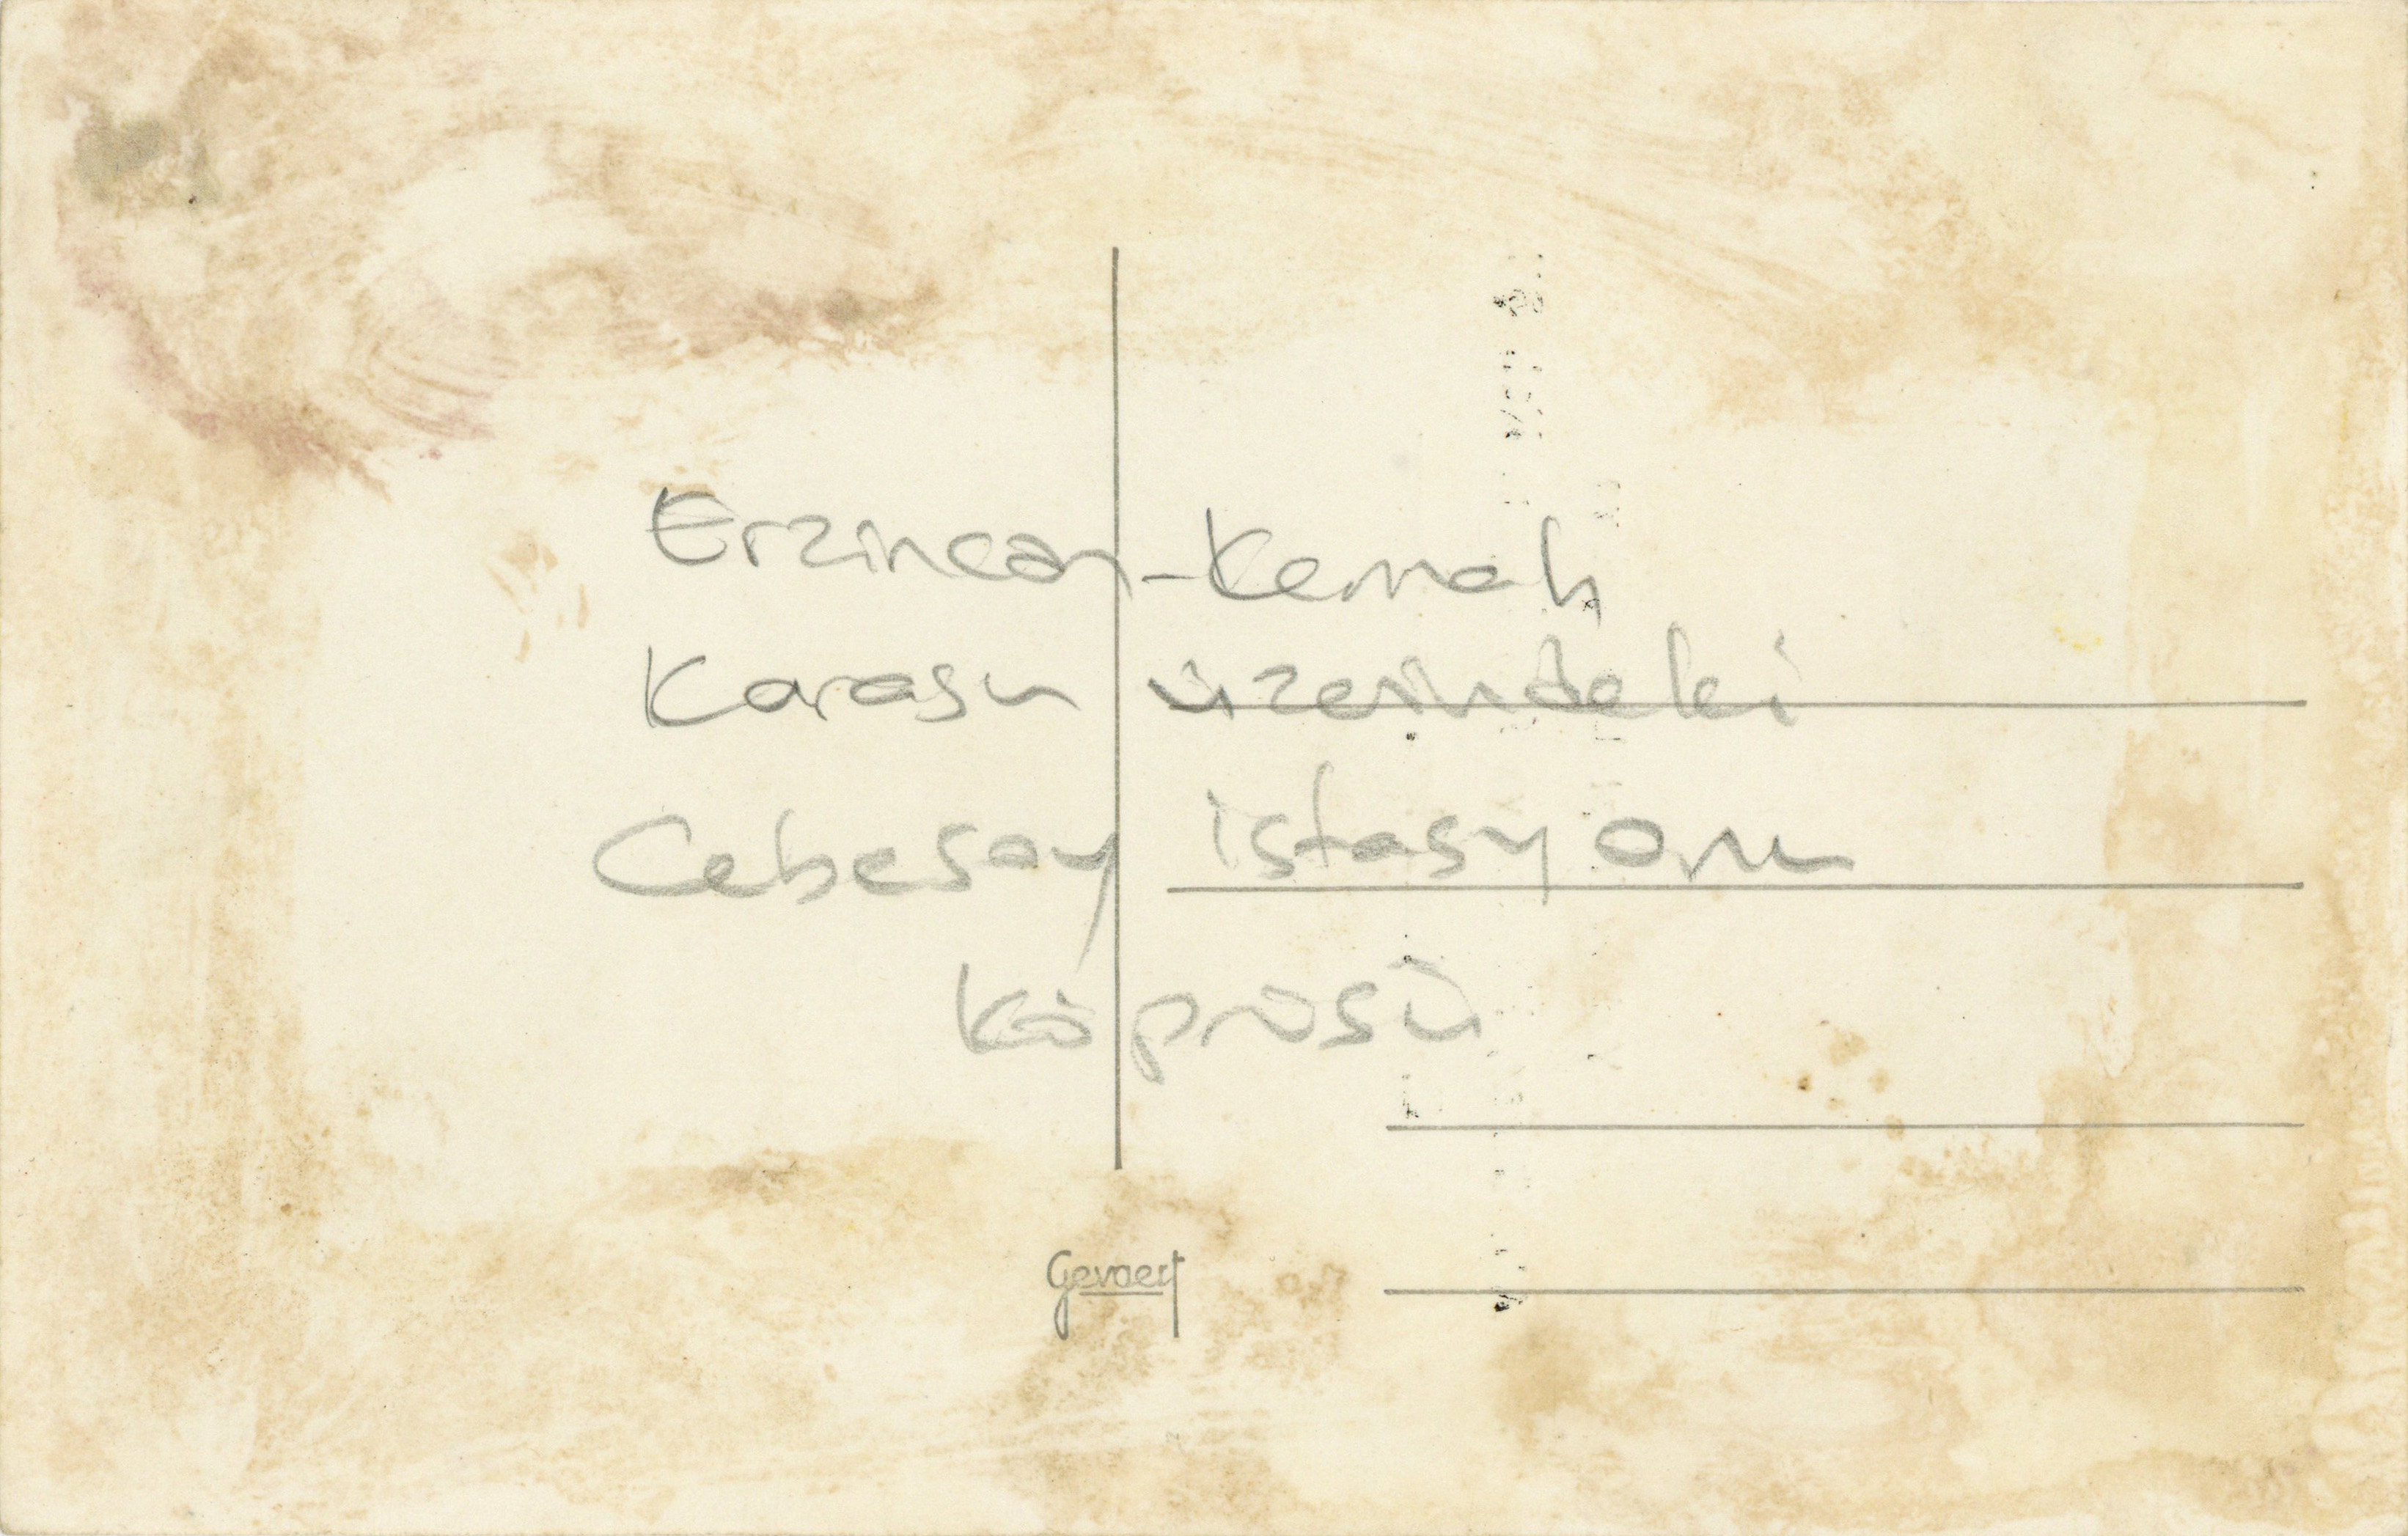 Erzincan-Kemah
Karasu üzerindeki
Cebesoy istasyonu
Köprüsü
Gevaert